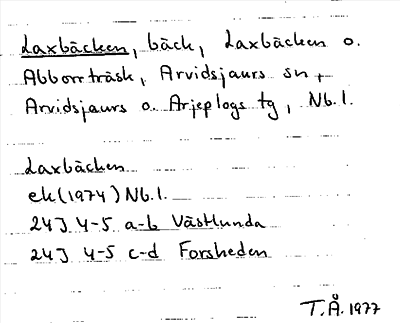 Laxbäcken, bäck, Laxbäcken o.
Abborrträsk, Arvidsjaurs sn,
Arvidsjaurs o. Arjeplogs tg, Nb.l.
Laxbäcken
ek(1974) Nb.l.
24J 4-5 a-b Västlunda
24J 4-5 c-d Forsheden
T.Å. 1977